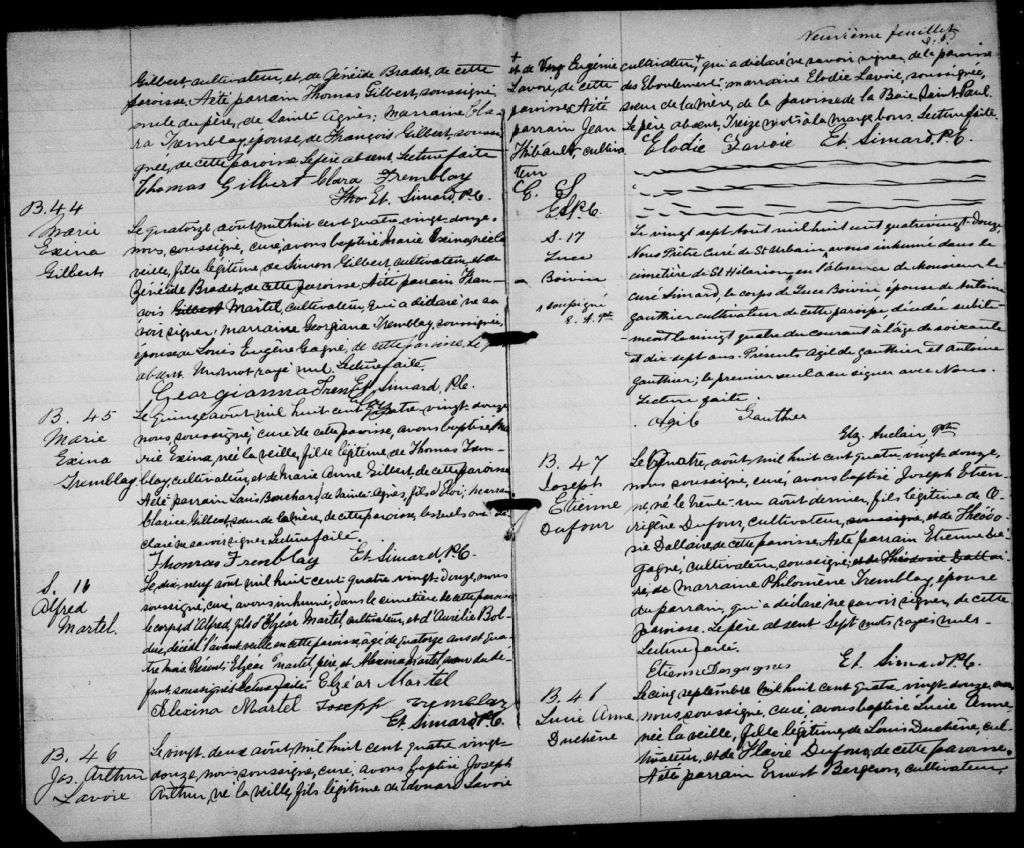 Gilbert cultivateur, et de Zénéïde Bradet, de cette
paroisse. A été parrain Thomas Gilbert, soussigné,
oncle du père, de Sainte Agnès; marraine Cla-
ra Tremblay, épouse, de François Gilbert, sous-
gnée, de cette paroisse. Le père absent Lecture faite
Thomas Gilbert Clara Tremblay
Et. Simard, P.C.
B. 44
Marie
Exina
Gilbert
Le quatorze août mil huit cent quatre vingt-douze,
nous, soussigné, curé, avons baptisé Marie Exina, née la
veille, fille légitime de Simon Gilbert cultivateur et de
Zénéïde Bradet, de cette paroisse. A été parrain Fran-
çois Gilbert Martel, cultivateur, qui a déclaré ne sa-
voir signer; marraine Georgiana Tremblay, soussignée,
épouse de Louis Eugène Gagné, de cette paroisse. Le
absent. Un mot rayé nul. Lecture faite.
Georgianna Trem
Et. Simard, P.C.
B. 45
Marie
Exina
Tremblay
Le quinze août mil huit cent quatre-vingt-douze
nous, soussigné, curé de cette paroisse, avons baptisé Ma-
rie Exina, née la veille, fille légitime de Thomas Trem-
blay cultivateur, et de Marie Anne Gilbert de cette paroisse
A été parrain Louis Bouchard de Sainte-Agnès, fils d'Eloi; marraine
Clarisse Gilbert, sœur de la mère, de cette paroisse, lesquels ont dé-
claré ne savoir signer. Lecture faite.
Thomas Tremblay Et. Simard, P.C.
S. 16
Alfred
Martel.
Le dix-neuf août mil huit-cent-quatre vingt-douze, nous
soussigné, curé, avons inhumé, dans le cimetière de cette paroisse
le corps d'Alfred, fils d'Elzéar Martel cultivateur, et d'Aurélie Bol-
duc, décédé l'avant veille en cette paroisse, âgé de quatorze ans et qua-
tre mois. Présents Elzéar Martel, père, et Alexina Martel, sœur du dé-
funt, soussignés Lecture faite Elzéar Martel
Alexina Martel Joseph Tremblay
Et. Simard, P.C.
B. 46
Jos. Arthur
Lavoie
Le vingt deux août, mil huit cent quatre vingt-
douze, nous soussigné, curé, avons baptisé Joseph
Arthur, né la veille, fils légitime de Edouard Lavoie
Neuvième feuillet
+ et de Eugénie
Lavoie, de cette
paroisse. A été
parrain Jean
Thibault cultiva
teur
E. S.
E.S.P.C.
cultivateur, + qui a déclaré ne savoir signer, de la paroisse
des Eboulements; marraine Elodie Lavoie, soussignée,
sœur de la mère, de la paroisse de la Baie Saint Paul.
Le père absent, Treize mots à la marge bons. Lecture faite.
Elodie Lavoie Et. Simard, P.C.
S. 17
Luce
Boivin
soussigné
Le vingt sept Aout mil huit cent quatrevingt-douze
Nous Prêtre Curé de St Urbain, avons inhumé dans le
cimetière de St Hilarion en l'absence de Monsieur le
curé Simard, le corps de Luce Boivin épouse de Antoine
Gauthier cultivateur de cette paroisse, décédée subite-
ment le vingt quatre du courant à l'âge de soixante
et dix sept ans. Présents Agil de gauthier et antoine
gauthier; le premier seul a su signer avec Nous.
Lecture faite.
Agil Gauthier
Elz. Auclair, Ptre
B. 47
Joseph
Etienne
Dufour
Le Quatre, août, mil huit cent quatre vingt douze,
nous, soussigné, curé, avons baptisé Joseph Etien-
ne, né le trente-un août dernier, fils légitime de O-
rigène Dufour, cultivateur, soussigné, et de Théodo-
sie Dallaire, de cette paroisse. A été parrain Etienne Dé-
gagné, cultivateur, soussigné, et de Théodosie Dallai-
re, de Marraine Philomène Tremblay, épouse
du parrain, qui a déclaré, ne savoir signer, de cette
paroisse. Le père absent Sept mots rayés nuls.
Lecture faite.
Etienne Desgagnes Et. Simard, P.C.
B. 46
Lucie Anne
Duchêne
Le cinq septembre, mil huit cent quatre vingt-douze,
nous, soussigné, curé, avons baptisé Lucie Anne
née la veille, fille légitime, de Louis Duchêne, cul-
tivateur, et de Flavie Dufour, de cette paroisse.
A été parrain Ernest Bergeron, cultivateur,